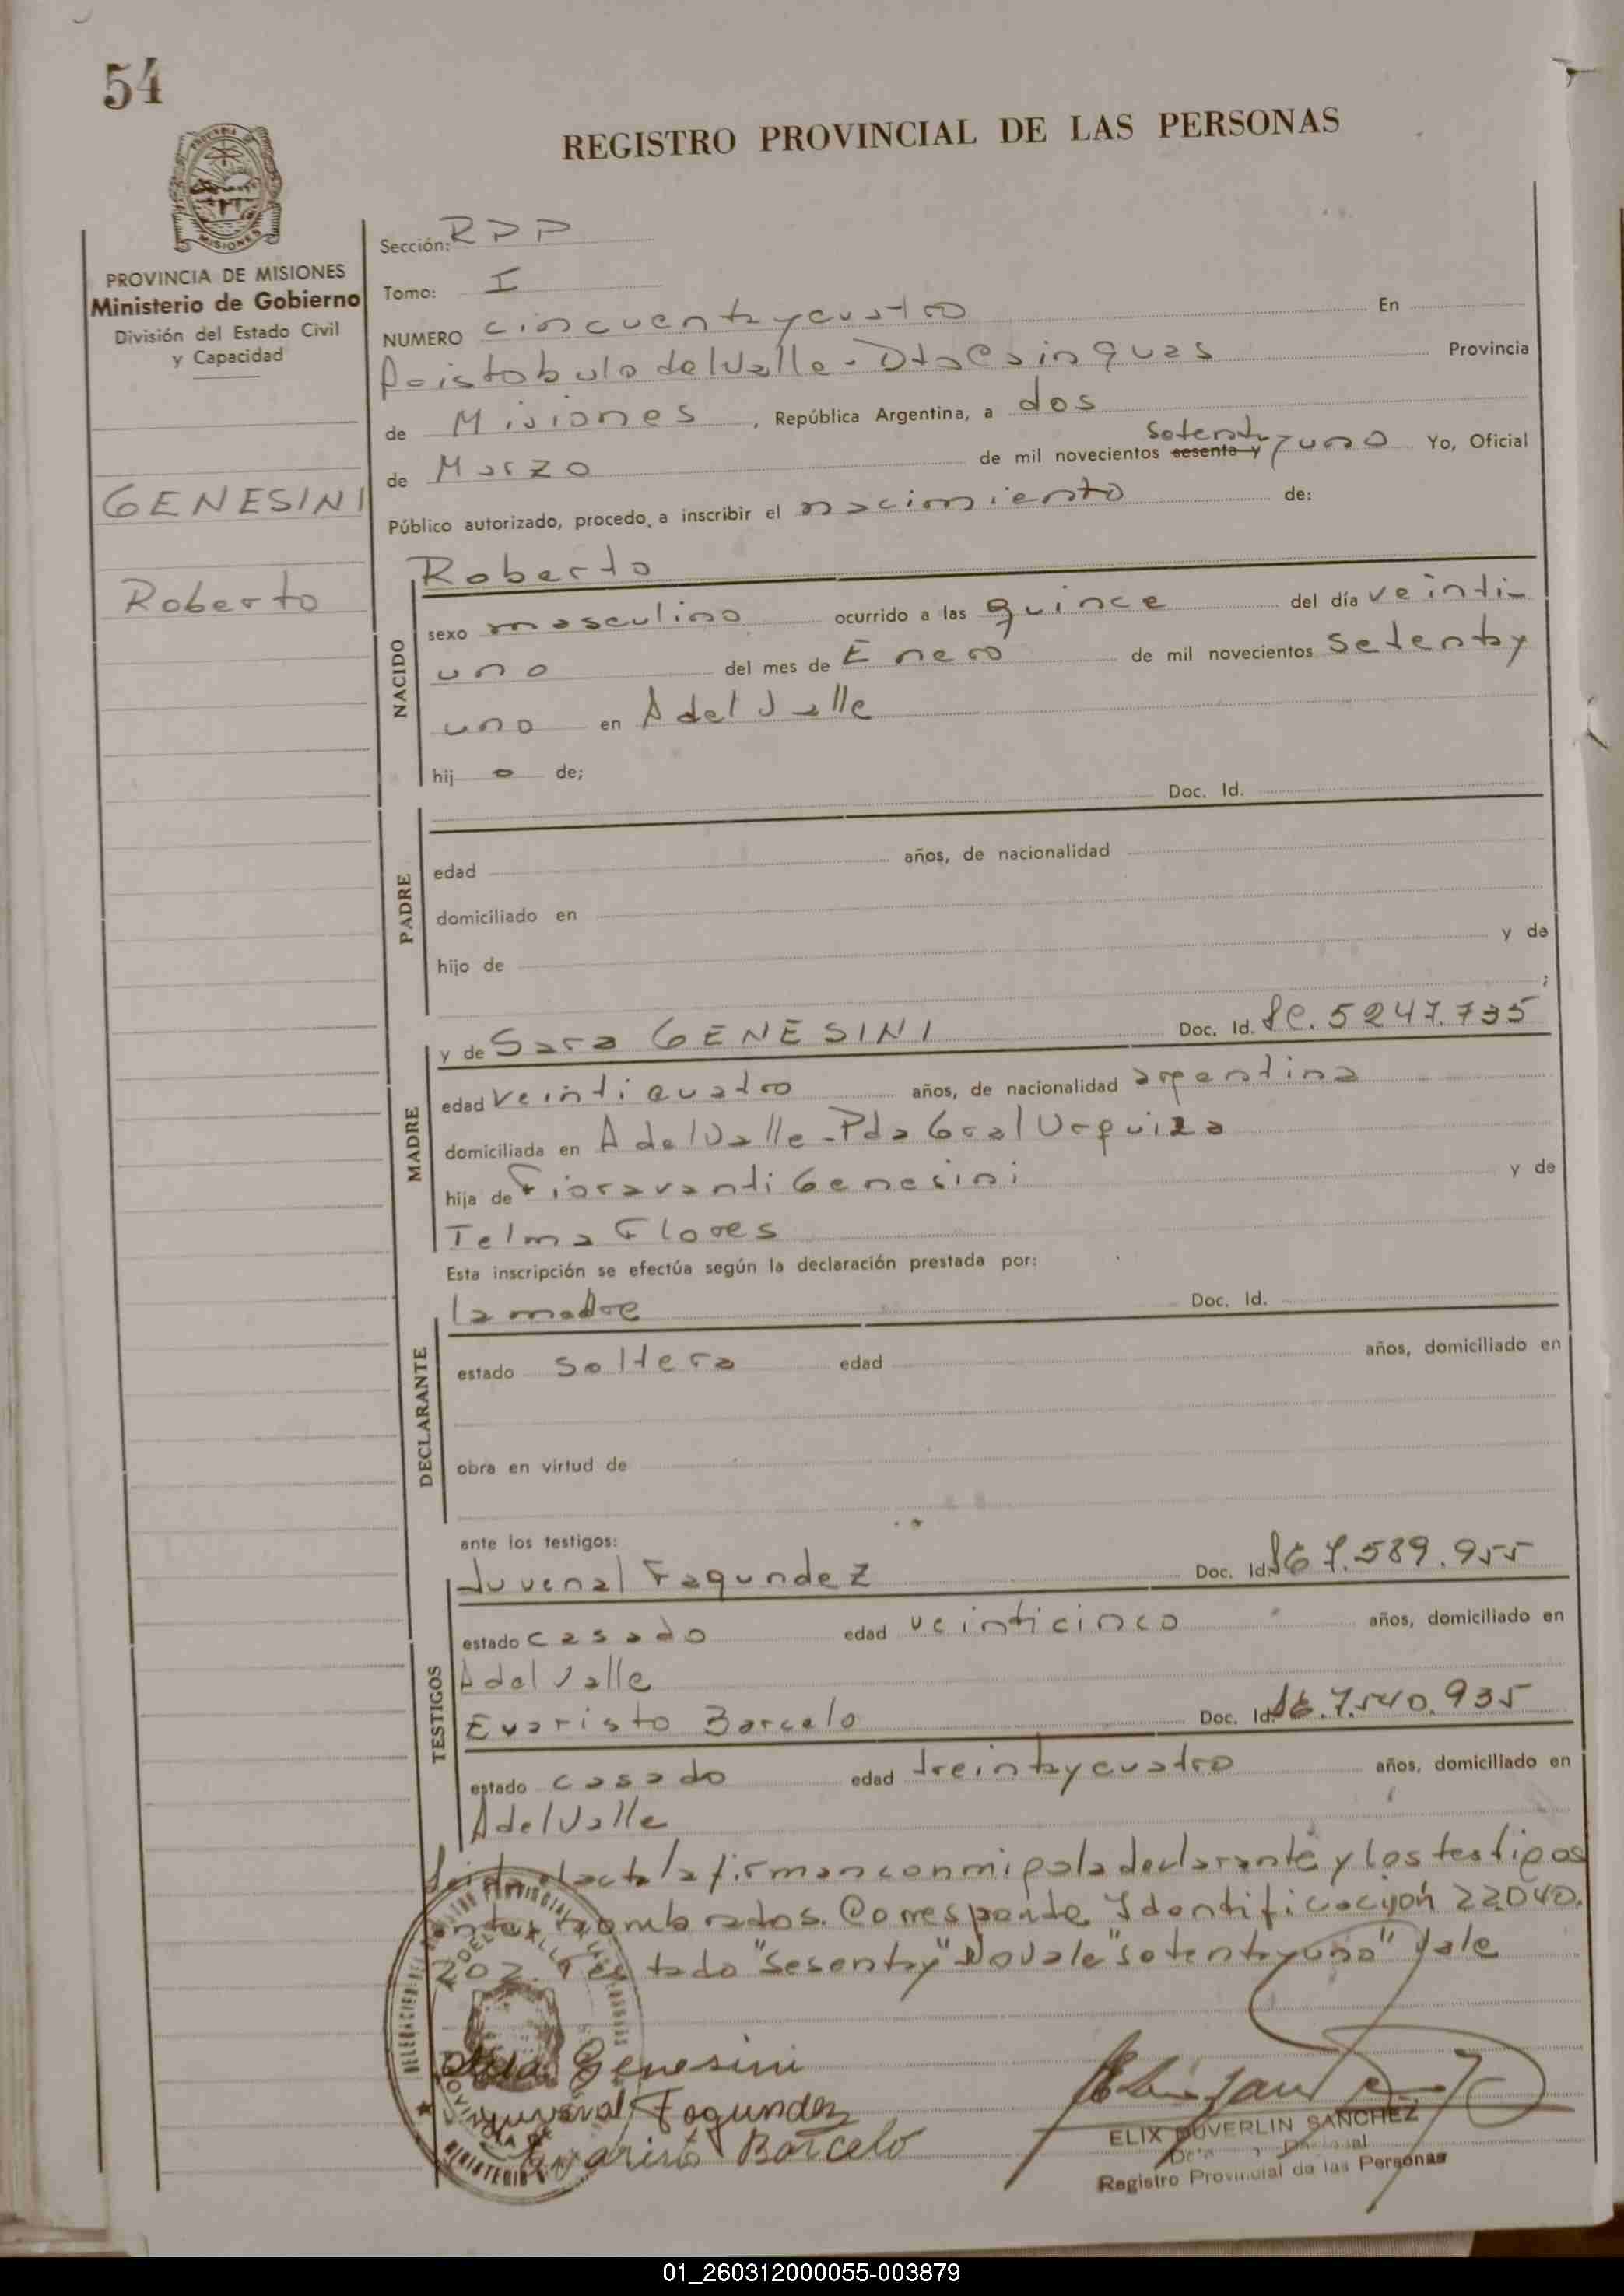 54
REGISTRO PROVINCIAL DE LAS PERSONAS
MISIONES
PROVINCIA DE MISIONES
Ministerio de Gobierno
División del Estado Civil
y Capacidad
GENESINI
Roberto
Sección: RPP
Tomo: I
NUMERO cincuentaycuatro En
Aristobulo del Valle - Dto Cainguas Provincia
de Misiones, República Argentina, a dos
de Marzo de mil novecientos sesenta y setentayuno Yo, Oficial
Público autorizado, procedo a inscribir el nacimiento de:
NACIDO
Roberto
sexo masculino ocurrido a las quince del día veinti-
uno del mes de Enero de mil novecientos setentay
uno en A del Valle
hij o de;
Doc. Id.
PADRE
edad años, de nacionalidad
domiciliado en
hijo de y de
;
MADRE
y de Sara GENESINI Doc. Id. LC. 5247.735
edad veinticuatro años, de nacionalidad argentina
domiciliada en A del Valle - Pda Gral Urquiza
hija de Fioravanti Genesini y de
Telma Flores
Esta inscripción se efectúa según la declaración prestada por:
DECLARANTE
la madre Doc. Id.
estado soltera edad años, domiciliado en
obra en virtud de
ante los testigos:
TESTIGOS
Juvenal Fagundez Doc. Id. 7.589.955
estado casado edad veinticinco años, domiciliado en
A del Valle
Evaristo Barcelo Doc. Id. 7.540.935
estado casado edad treintaycuatro años, domiciliado en
A del Valle
Leida el acta la firman conmigo la declarante y los testigos
antes nombrados. Corresponde Identificación 22.040.
202. Testado "Sesentay" No Vale "setentayuno" Vale
Sara Genesini
Juvenal Fagundez
Evaristo Barcelo
ELIX DUVERLIN SANCHEZ
Registro Provincial de las Personas
01_260312000055-003879